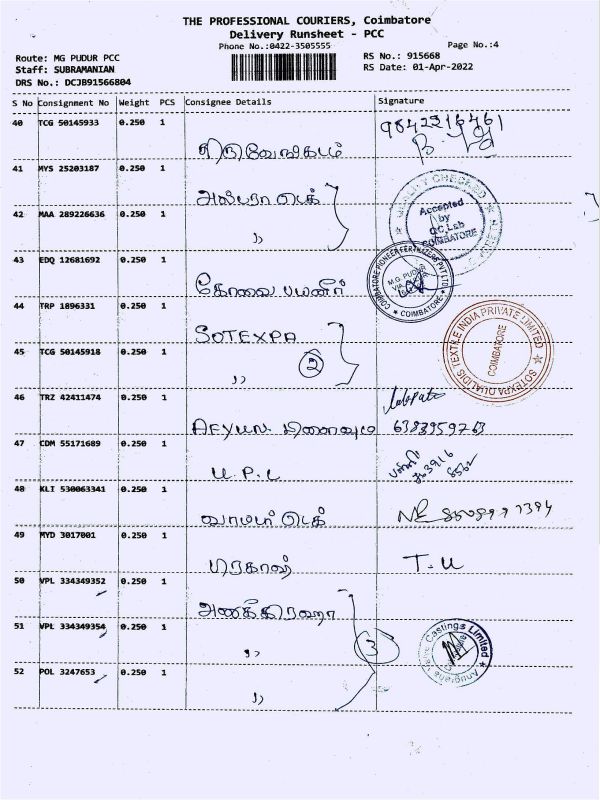 THE PROFESSIONAL COURIERS, Coimbatore
Delivery Runsheet - PCC
Phone No.:0422-3505555
Page No.:4
Route: MG PUDUR PCC
RS No.: 915668
Staff: SUBRAMANIAN
RS Date: 01-Apr-2022
DRS No.: DCJB91566804
S No Consignment No Weight PCS Consignee Details Signature
40 TCG 50145933 0.250 1
41 MYS 25203187 0.250 1
QUALITY CHECKED
Accepted by Q.C.Lab COIMBATORE
42 MAA 289226636 0.250 1
,,
43 EDQ 12681692 0.250 1
கோவை பயனீர்
COIMBATORE PIONEER FERTILIZERS PVT LTD
M.G. PUDUR
COIMBATORE
44 TRP 1896331 0.250 1
SOTEXPA
SOTEXPA QUALIDIS TEXTILE INDIA PRIVATE LIMITED
COIMBATORE
45 TCG 50145918 0.250 1
,, 2
46 TRZ 42411474 0.250 1
6383959763
47 CDM 55171689 0.250 1
U.P.L
48 KLI 530063341 0.250 1
49 MYD 3017001 0.250 1
பிரகாஷ் T.U
50 VPL 334349352 0.250 1
51 VPL 334349354 0.250 1
,, 3
Castings Limited
52 POL 3247653 0.250 1
,,